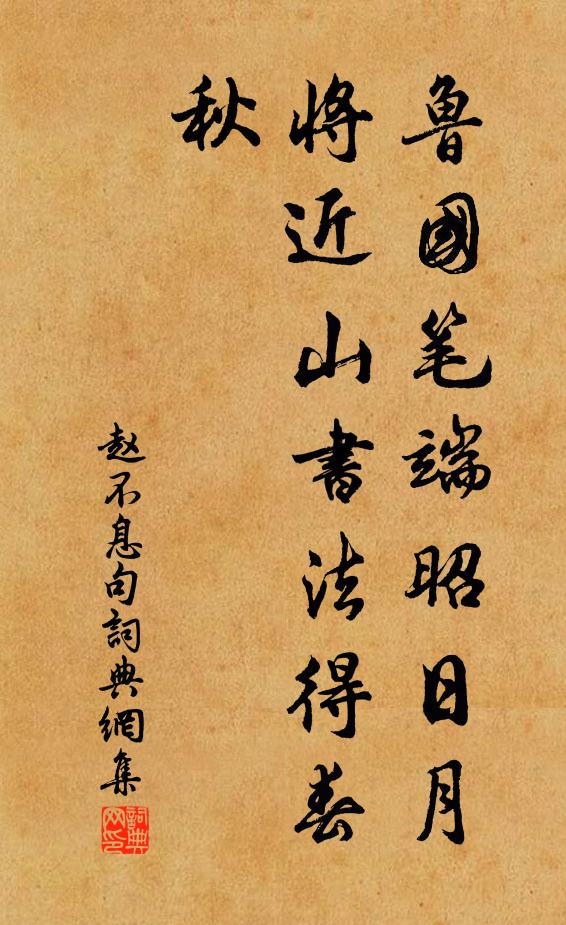 魯國笔端昭日月
將近山書法得春
秋
赵不息句詞典網集
詞典
网印